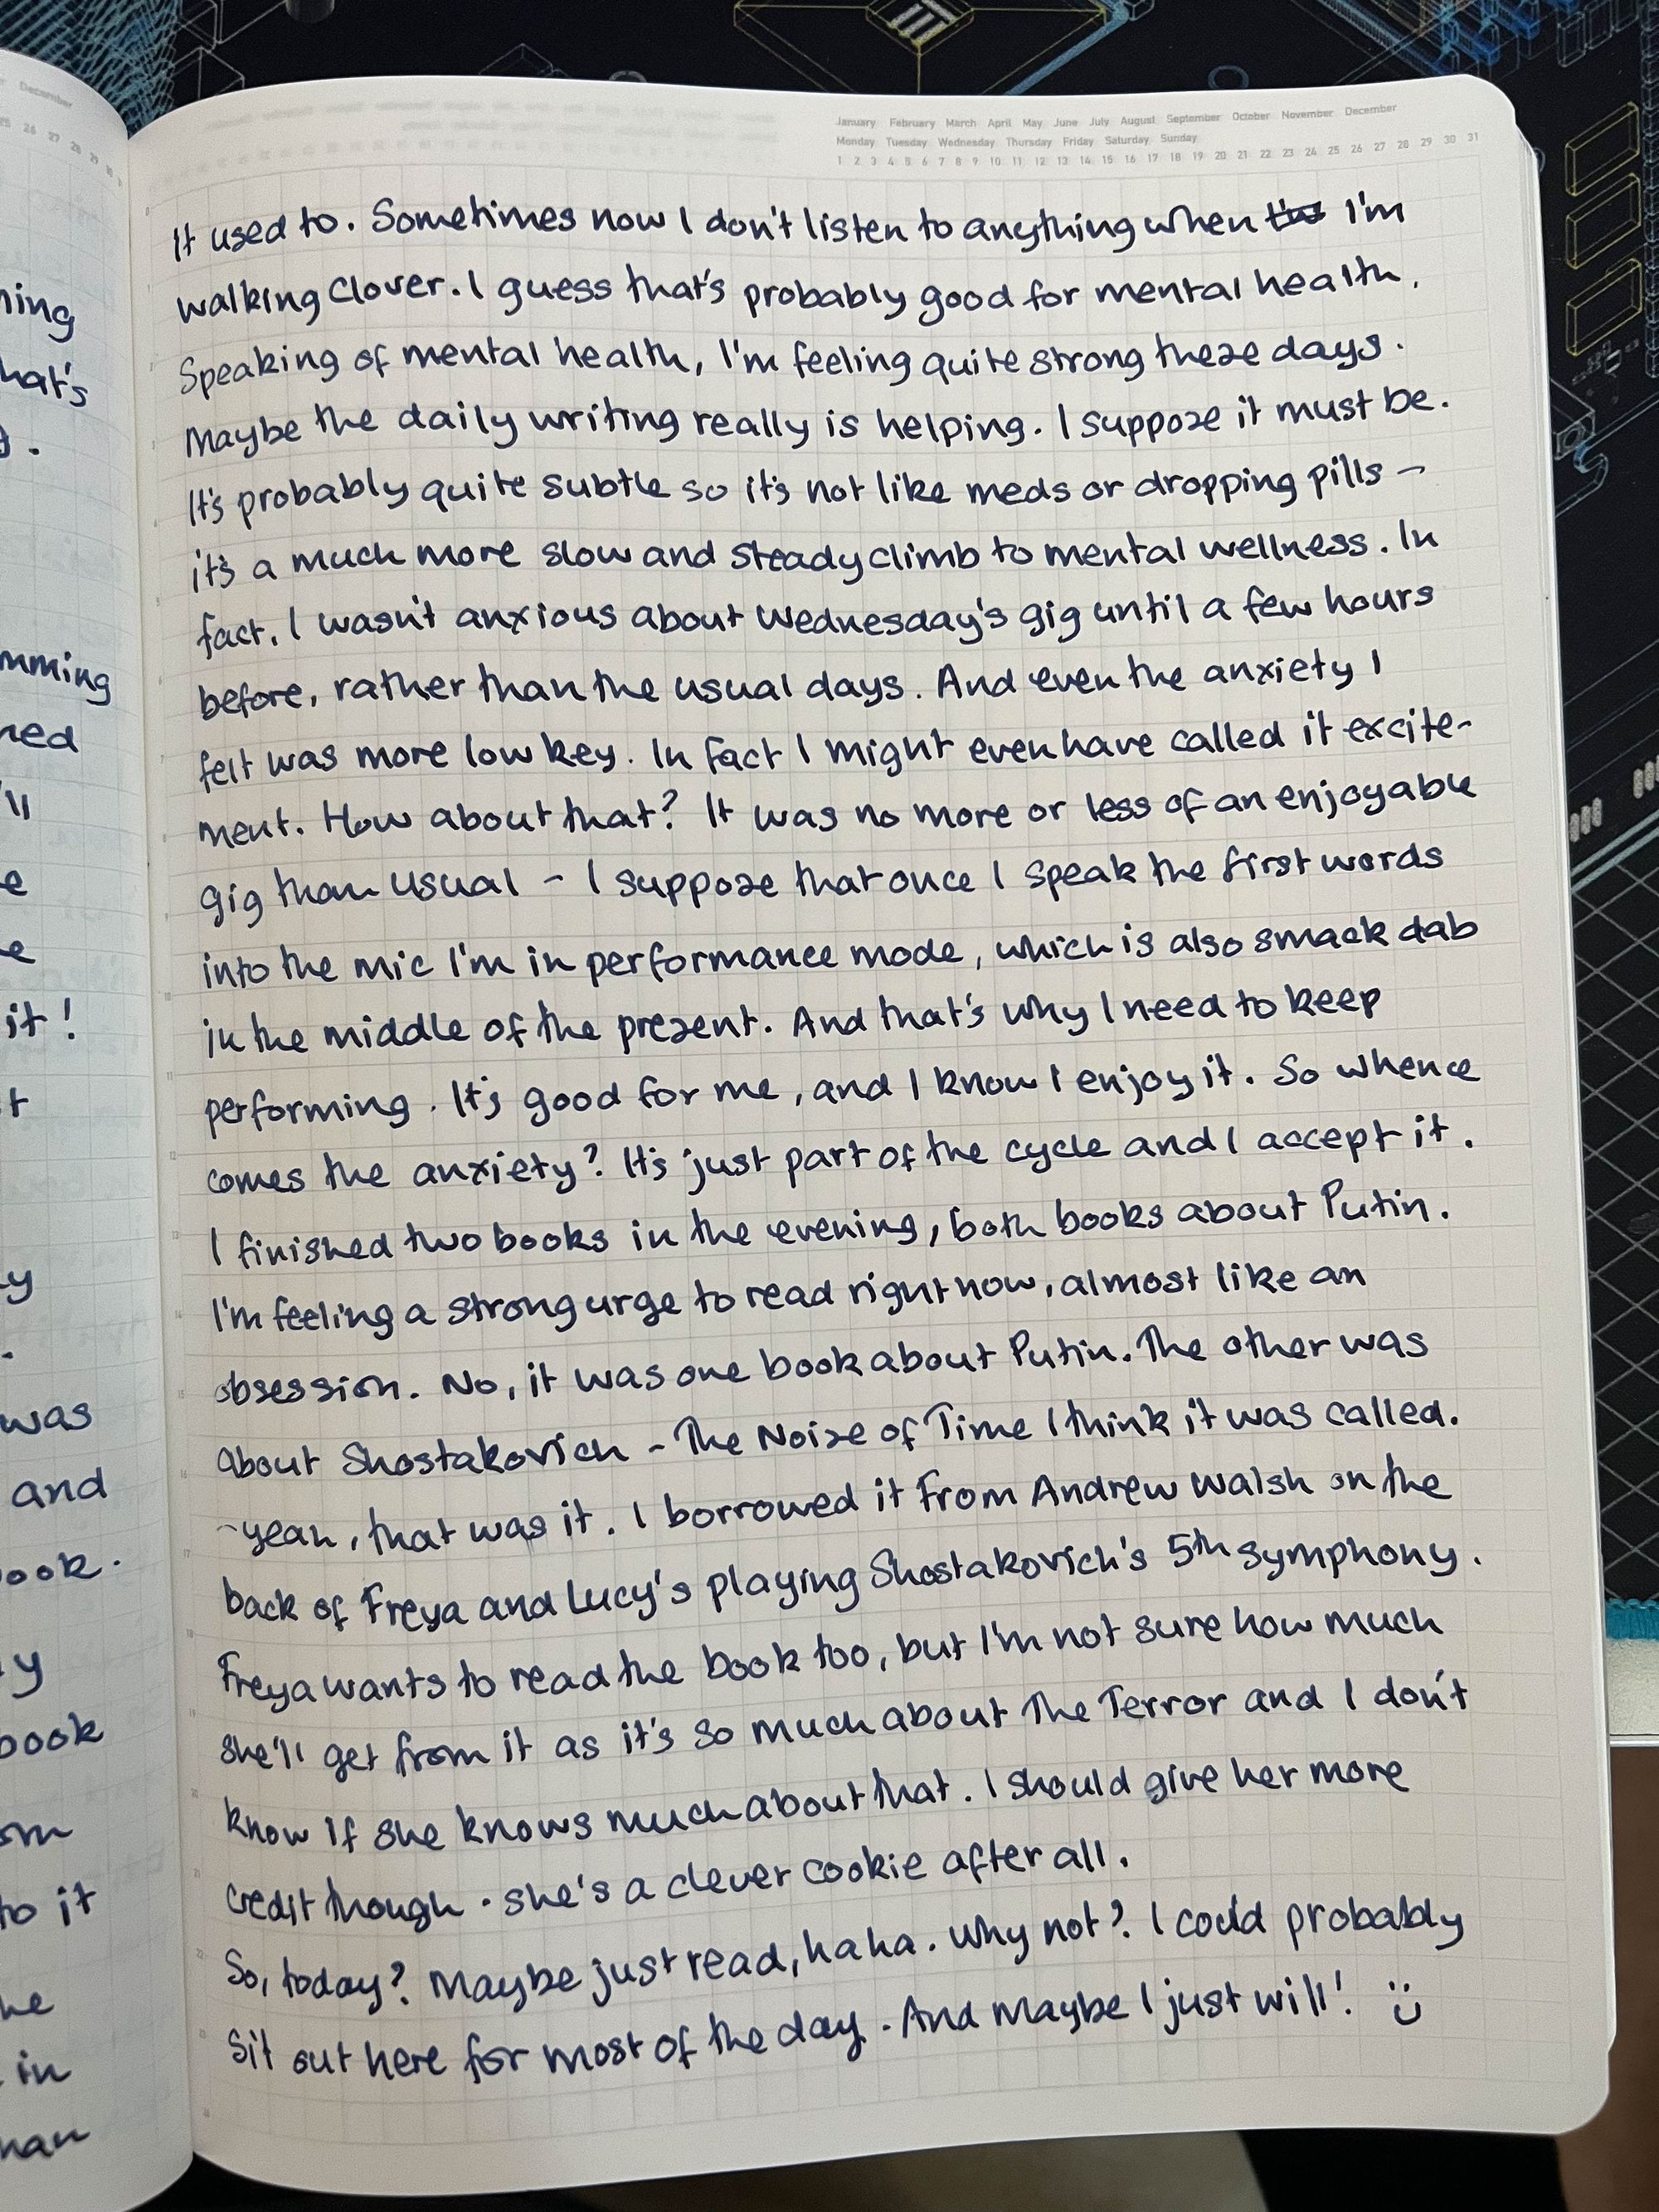 December
25 26 27 28 29 30
January February March April May June July August September October November December
Monday Tuesday Wednesday Thursday Friday Saturday Sunday
1 2 3 4 5 6 7 8 9 10 11 12 13 14 15 16 17 18 19 20 21 22 23 24 25 26 27 28 29 30 31
It used to. Sometimes now I don't listen to anything when I'm
walking Clover. I guess that's probably good for mental health.
Speaking of mental health, I'm feeling quite strong these days.
Maybe the daily writing really is helping. I suppose it must be.
It's probably quite subtle so it's not like meds or dropping pills –
it's a much more slow and steady climb to mental wellness. In
fact, I wasn't anxious about Wednesday's gig until a few hours
before, rather than the usual days. And even the anxiety I
felt was more low key. In fact I might even have called it excite-
ment. How about that? It was no more or less of an enjoyable
gig than usual – I suppose that once I speak the first words
into the mic I'm in performance mode, which is also smack dab
in the middle of the present. And that's why I need to keep
performing. It's good for me, and I know I enjoy it. So whence
comes the anxiety? It's just part of the cycle and I accept it.
I finished two books in the evening, both books about Putin.
I'm feeling a strong urge to read right now, almost like an
obsession. No, it was one book about Putin. The other was
about Shostakovich – The Noise of Time I think it was called.
– yeah, that was it. I borrowed it from Andrew Walsh on the
back of Freya and Lucy's playing Shostakovich's 5th symphony.
Freya wants to read the book too, but I'm not sure how much
she'll get from it as it's so much about The Terror and I don't
know if she knows much about that. I should give her more
credit though. She's a clever cookie after all.
So, today? Maybe just read, haha. Why not? I could probably
sit out here for most of the day. And maybe I just will! :)